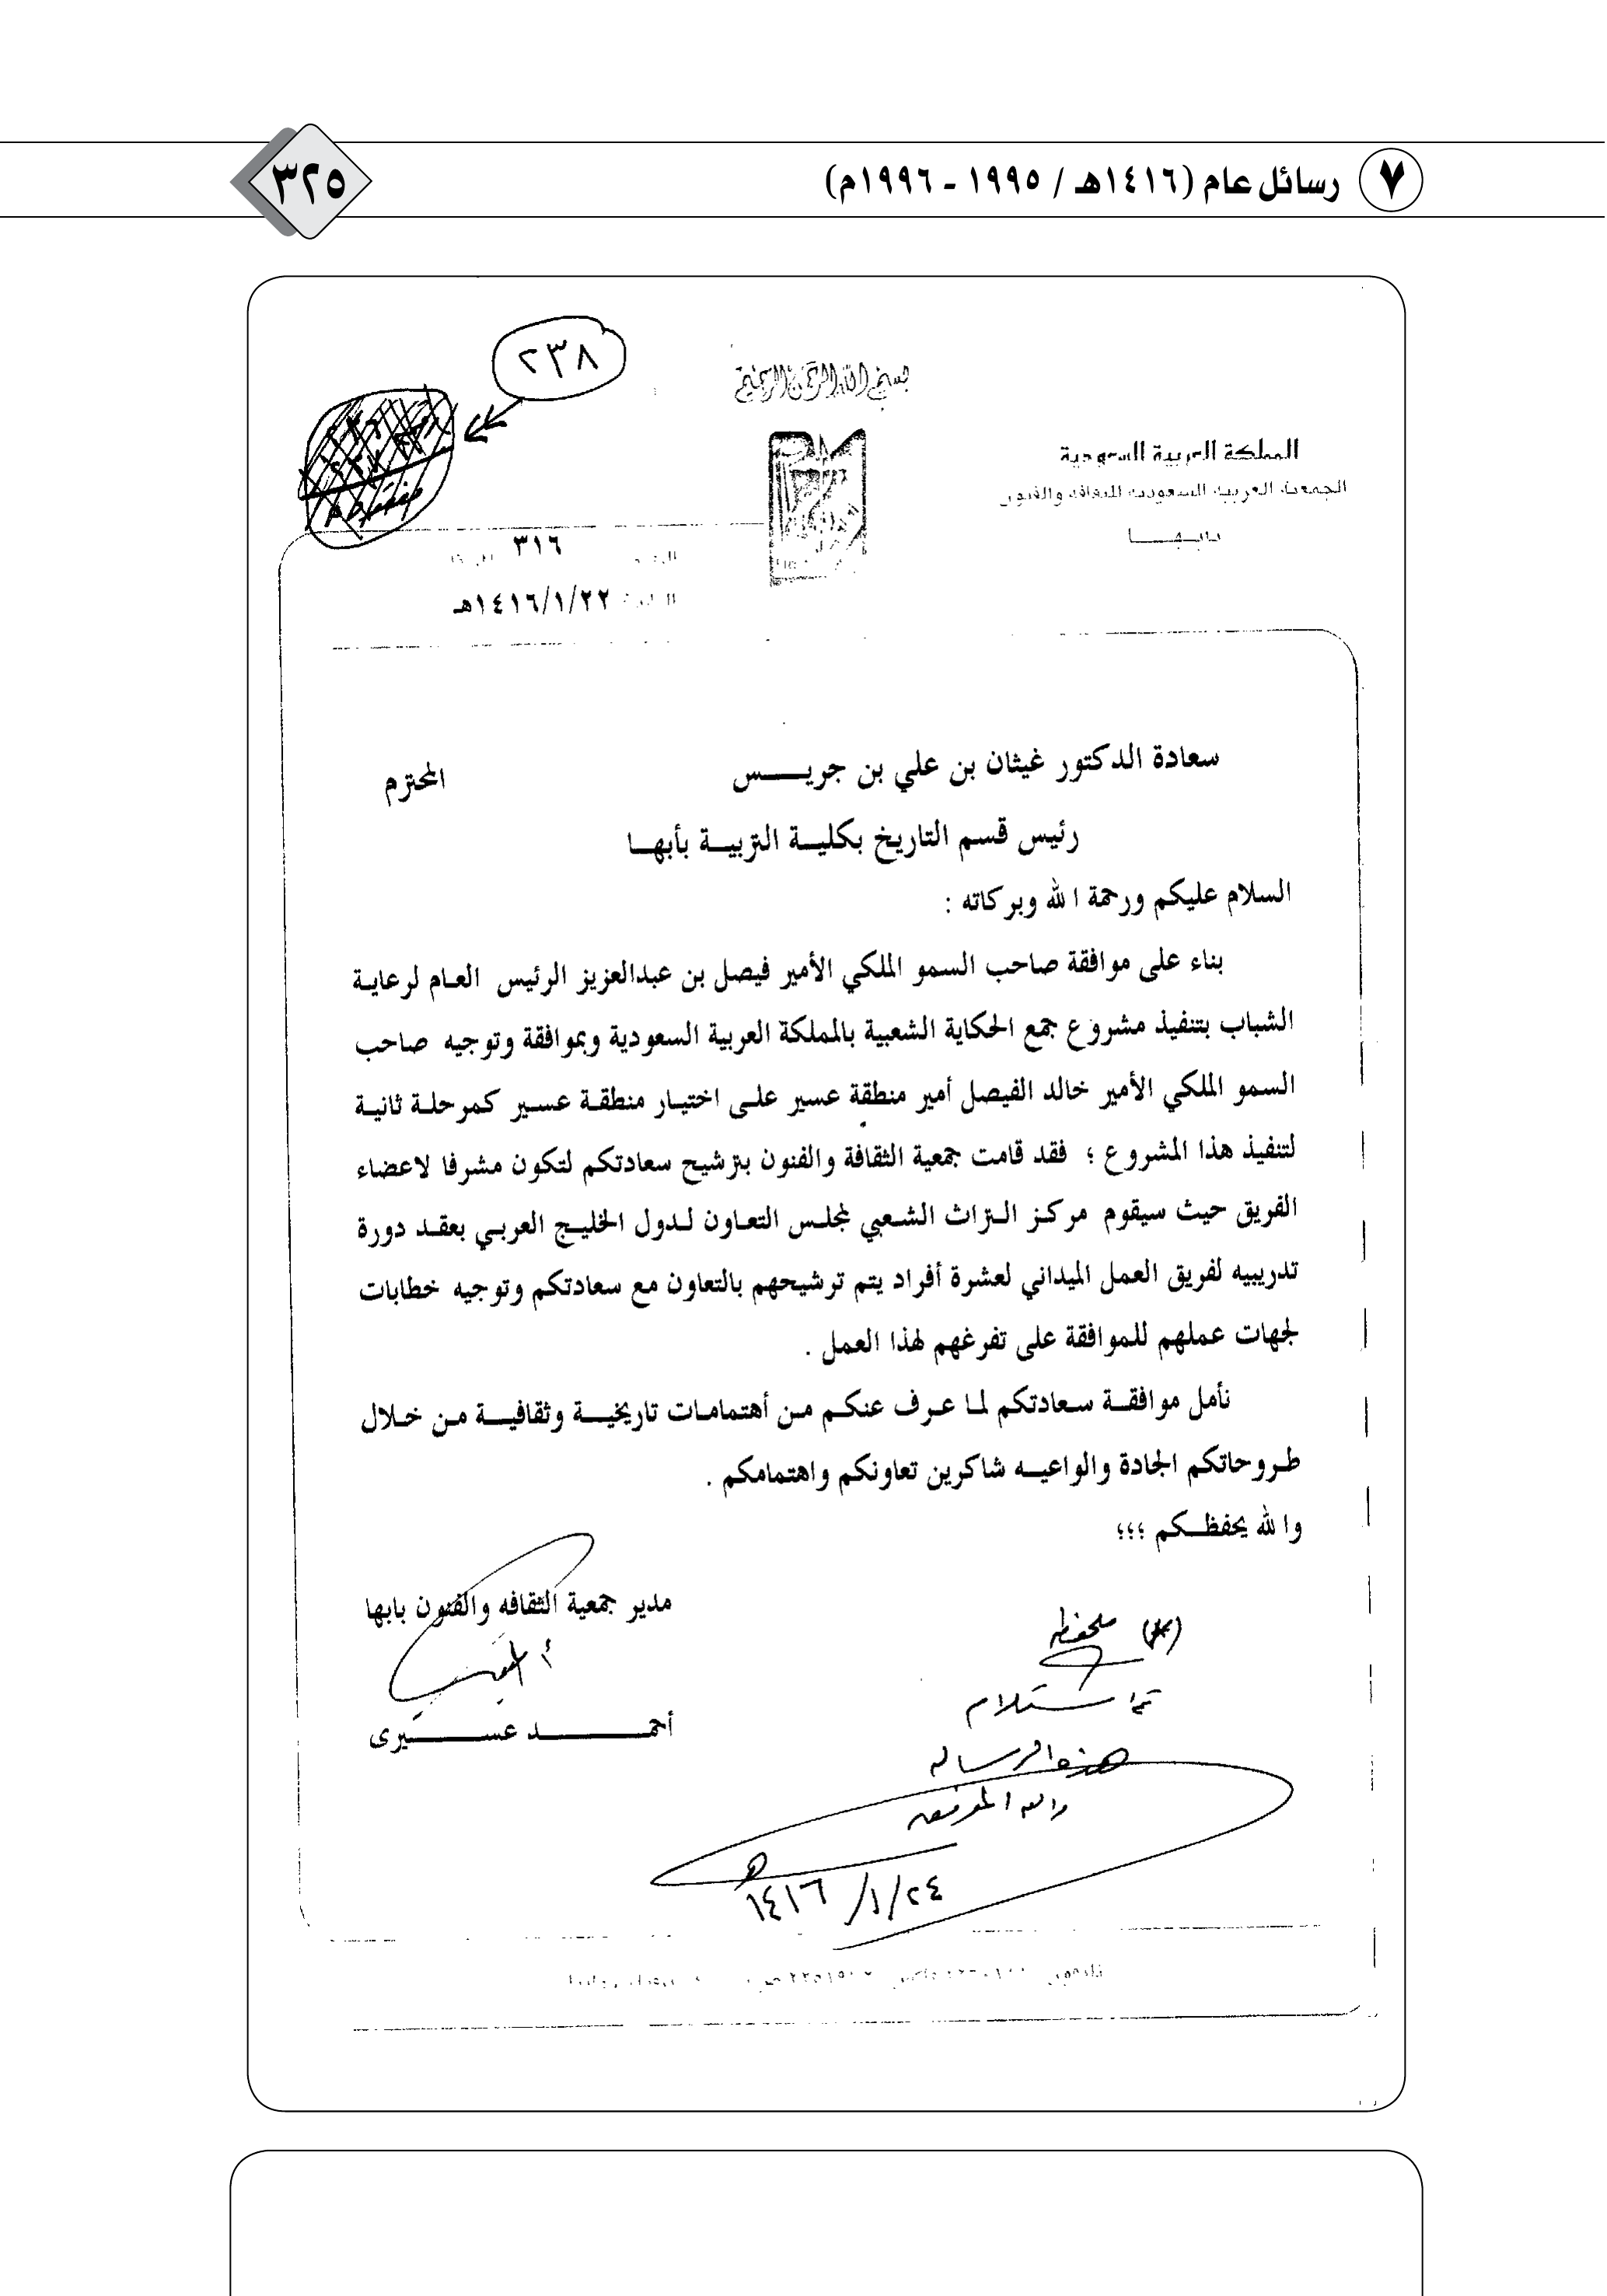 ٧ رسائل عام (١٤١٦هـ / ١٩٩٥ - ١٩٩٦م)
٣٢٥
٢٣٨
بسم الله الرحمن الرحيم
المملكة العربية السعودية
الجمعية العربية السعودية للثقافة والفنون
بأبهـــا
الرقم ٣١٦
التاريخ ١٤١٦/١/٢٢هـ
سعادة الدكتور غيثان بن علي بن جريـــس المحترم
رئيس قسم التاريخ بكليـة التربيـة بأبهـا
السلام عليكم ورحمة الله وبركاته :
بناء على موافقة صاحب السمو الملكي الأمير فيصل بن عبدالعزيز الرئيس العـام لرعايـة
الشباب بتنفيذ مشروع جمع الحكاية الشعبية بالمملكة العربية السعودية وبموافقة وتوجيه صاحب
السمو الملكي الأمير خالد الفيصل أمير منطقة عسير علـى اختيـار منطقـة عسـير كمرحلـة ثانيـة
لتنفيذ هذا المشروع ؛ فقد قامت جمعية الثقافة والفنون بترشيح سعادتكم لتكون مشرفا لاعضاء
الفريق حيث سيقوم مركـز الـتراث الشـعبي لمجلـس التعـاون لـدول الخليـج العربـي بعقـد دورة
تدريبيه لفريق العمل الميداني لعشرة أفراد يتم ترشيحهم بالتعاون مع سعادتكم وتوجيه خطابات
لجهات عملهم للموافقة على تفرغهم لهذا العمل .
نأمل موافقـة سـعادتكم لمـا عـرف عنكـم مـن أهتمامـات تاريخيـة وثقافيـة مـن خـلال
طـروحاتكم الجادة والواعيـه شاكرين تعاونكم واهتمامكم .
والله يحفظـكم ؛؛؛
مدير جمعية الثقافه والفنون بابها
أحمـــــــد عســـــــيرى
(*) ملحوظه
تم استلام
هذه الرساله
والله الموفق
١٤١٦/١/٢٤هـ